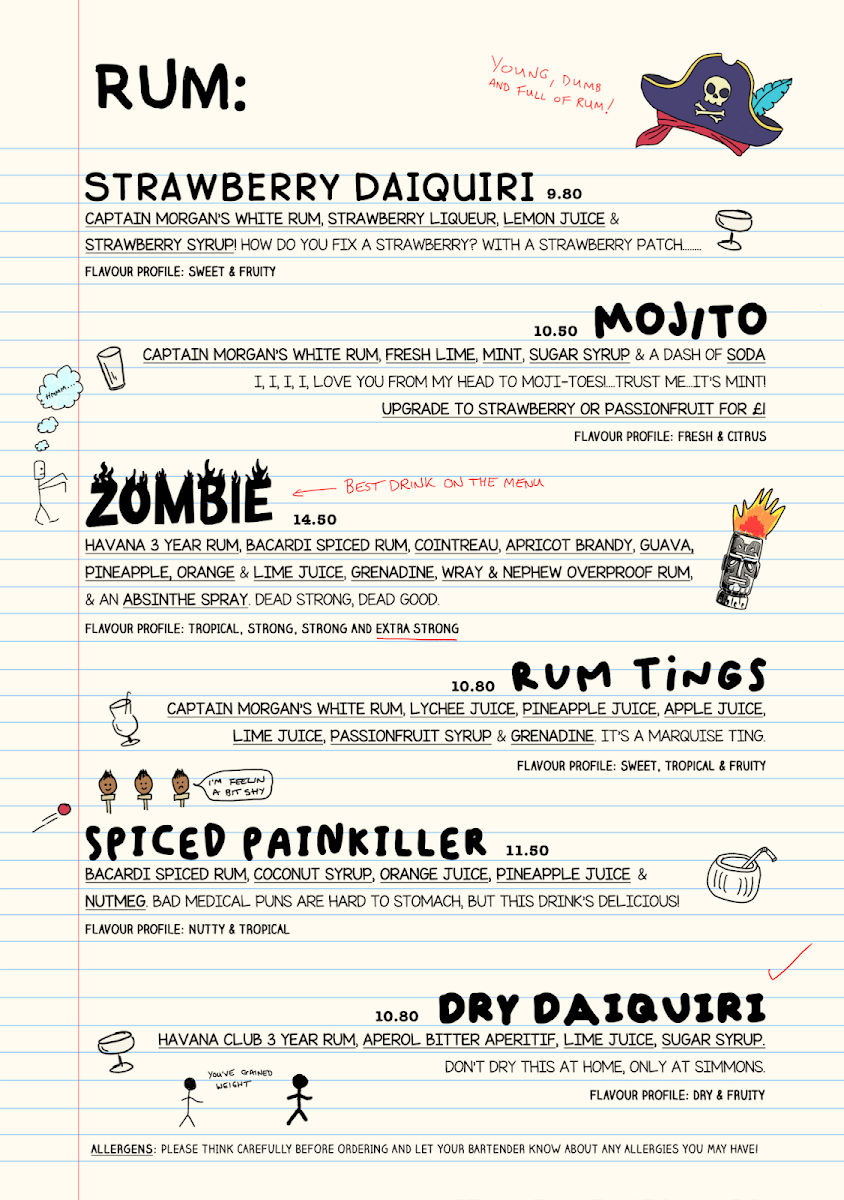 RUM:
YOUNG, DUMB
AND FULL OF RUM!
STRAWBERRY DAIQUIRI 9.80
CAPTAIN MORGAN'S WHITE RUM, STRAWBERRY LIQUEUR, LEMON JUICE &
STRAWBERRY SYRUP! HOW DO YOU FIX A STRAWBERRY? WITH A STRAWBERRY PATCH........
FLAVOUR PROFILE: SWEET & FRUITY
10.50 MOJITO
CAPTAIN MORGAN'S WHITE RUM, FRESH LIME, MINT, SUGAR SYRUP & A DASH OF SODA
I, I, I, I, LOVE YOU FROM MY HEAD TO MOJI-TOES!....TRUST ME...IT'S MINT!
UPGRADE TO STRAWBERRY OR PASSIONFRUIT FOR £1
FLAVOUR PROFILE: FRESH & CITRUS
ZOMBIE 14.50
BEST DRINK ON THE MENU
HAVANA 3 YEAR RUM, BACARDI SPICED RUM, COINTREAU, APRICOT BRANDY, GUAVA,
PINEAPPLE, ORANGE & LIME JUICE, GRENADINE, WRAY & NEPHEW OVERPROOF RUM,
& AN ABSINTHE SPRAY. DEAD STRONG, DEAD GOOD.
FLAVOUR PROFILE: TROPICAL, STRONG, STRONG AND EXTRA STRONG
10.80 RUM TiNGS
CAPTAIN MORGAN'S WHITE RUM, LYCHEE JUICE, PINEAPPLE JUICE, APPLE JUICE,
LIME JUICE, PASSIONFRUIT SYRUP & GRENADINE. IT'S A MARQUISE TING.
FLAVOUR PROFILE: SWEET, TROPICAL & FRUITY
I'M FEELIN
A BIT SHY
SPICED PAINKILLER 11.50
BACARDI SPICED RUM, COCONUT SYRUP, ORANGE JUICE, PINEAPPLE JUICE &
NUTMEG. BAD MEDICAL PUNS ARE HARD TO STOMACH, BUT THIS DRINK'S DELICIOUS!
FLAVOUR PROFILE: NUTTY & TROPICAL
10.80 DRY DAIQUIRI
HAVANA CLUB 3 YEAR RUM, APEROL BITTER APERITIF, LIME JUICE, SUGAR SYRUP.
DON'T DRY THIS AT HOME, ONLY AT SIMMONS.
FLAVOUR PROFILE: DRY & FRUITY
YOU'VE GAINED
WEIGHT
ALLERGENS: PLEASE THINK CAREFULLY BEFORE ORDERING AND LET YOUR BARTENDER KNOW ABOUT ANY ALLERGIES YOU MAY HAVE!